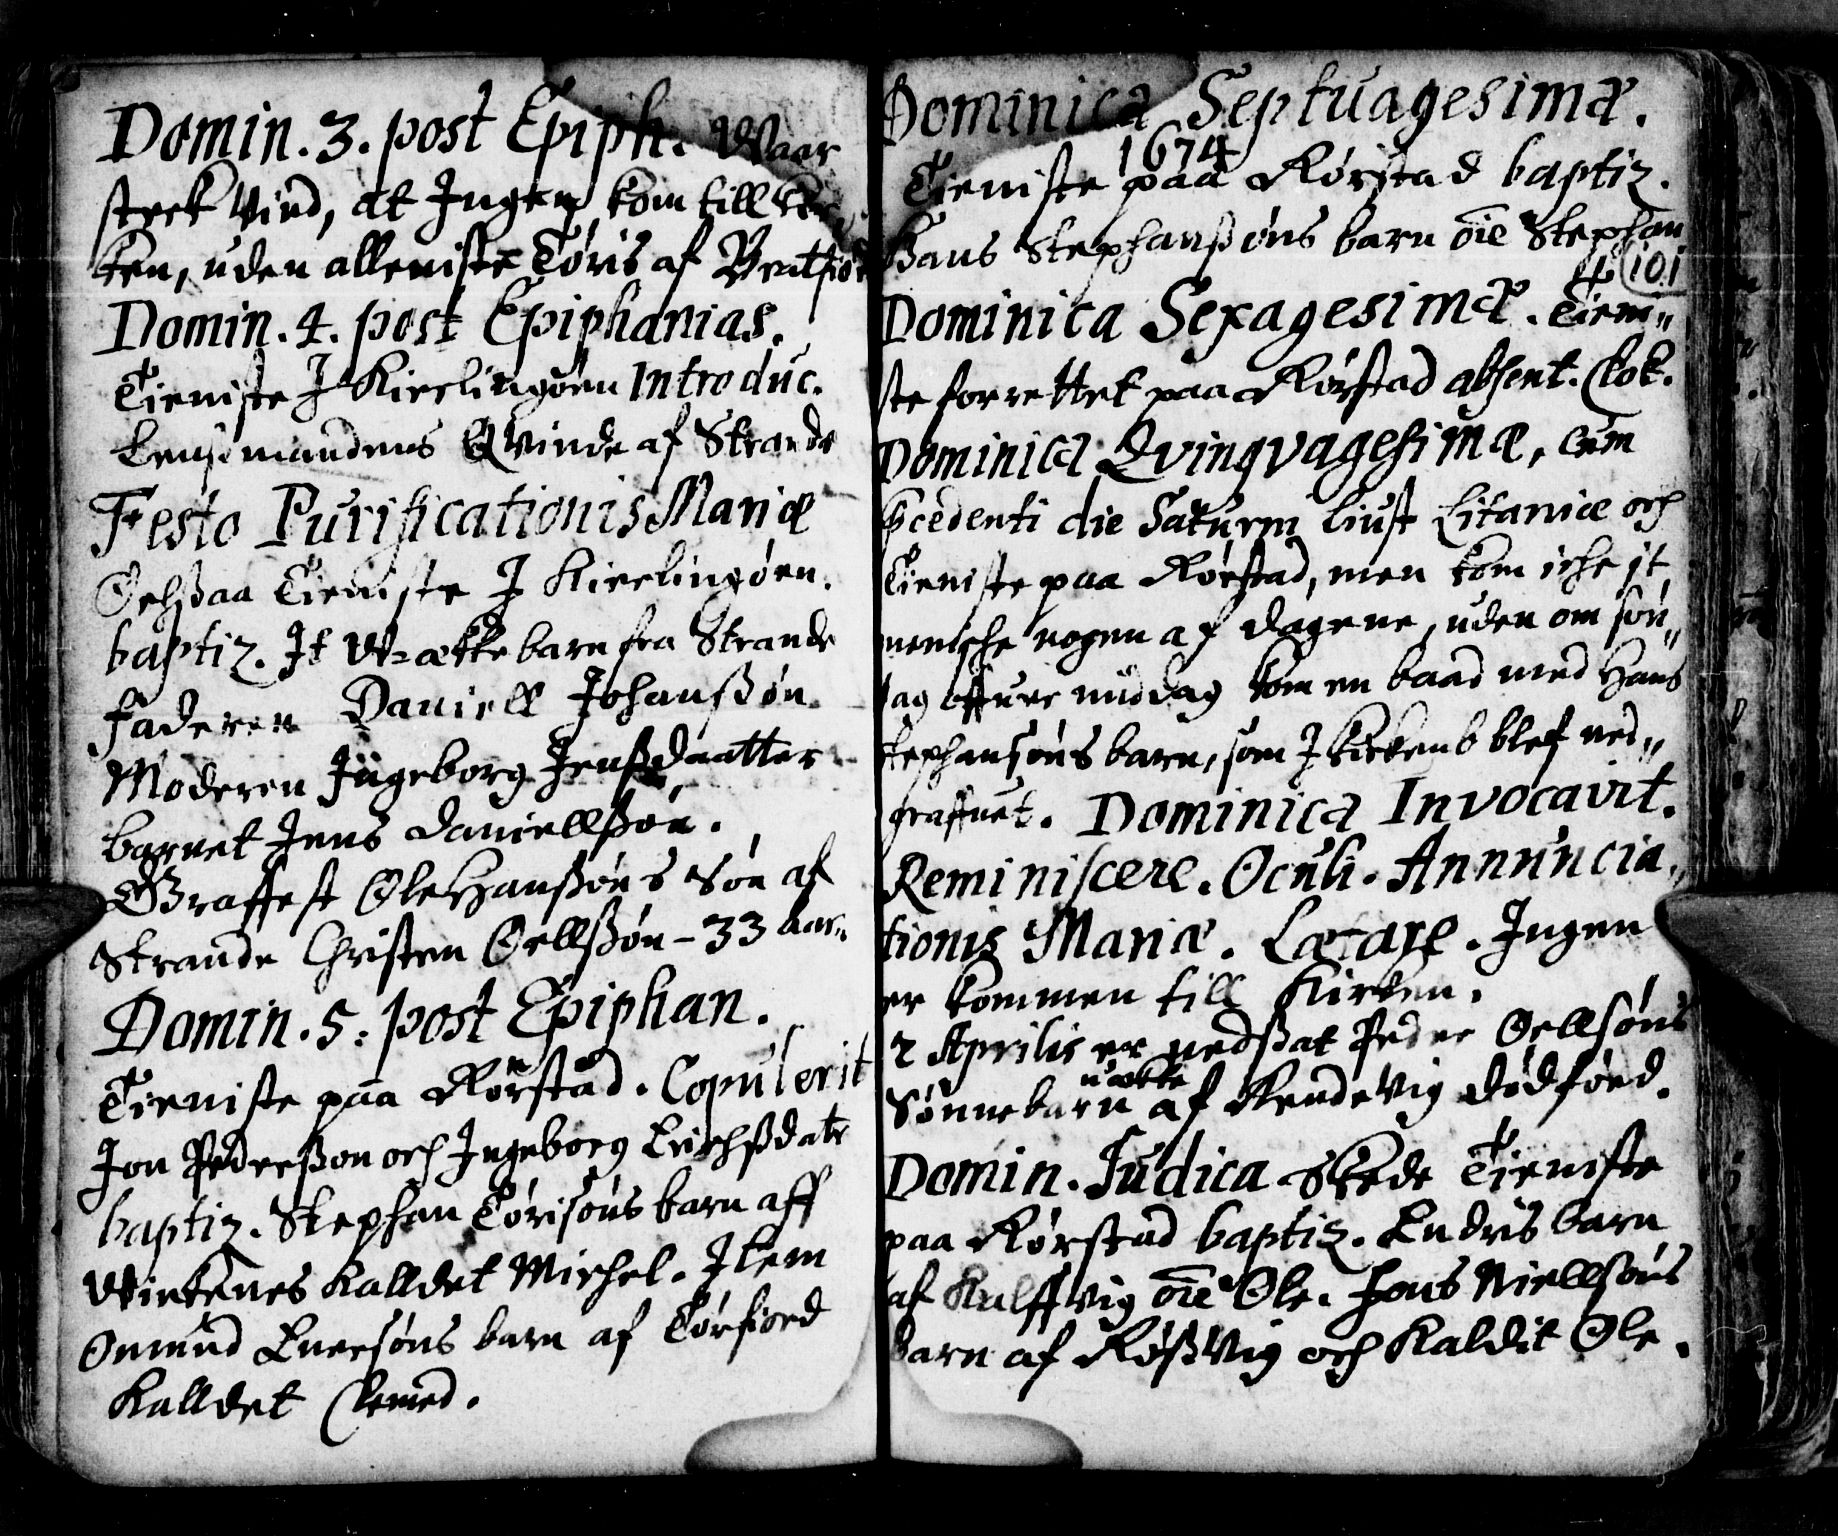 Domin. 3. post Epiph. Waar
sterk Vind, at Ingen kom till Kir„
ken, uden alleniste Töris af Bratfiord
Domin. 4. post Epiphanias.
Tieniste J Kierlingöen Introduc.
Lensmandens Qvinde af Strande
Festo Purificationis Mariæ
Ochßaa Tieniste J Kierlingöen.
baptiz. It Vække barn fra Strande
Faderen Daniell Johanßön
Moderen Ingeborg Jenßdaatter
barnet Jens Daniellßön.
Graffest Ole Hanßöns Sön af
Strande Christen Oellßön - 33 aar„
Domin. 5. post Epiphan.
Tieniste paa Rörstad. Copulerit
Jon Pederßon och Ingeborg Erichßdatr
baptiz. Stephan Törisöns barn aff
Vinkenes Kalldet Michel. Item
Onnund Enersöns barn af Törfiord
Kalldet Clemed.
Dominica Septuagesimæ.
1674
Tieniste paa Rörstad baptiz.
Hans Stephanßöns barn õie Stephan
101
Dominica Sexagesimæ. Tieni„
ste forrettet paa Rörstad absent. Clok.
Dominica Qvinqvagesimæ, cum
pcedenti die Saturni liust Litaniæ och
Tieniste paa Rörstad, men kom iche it
meniche nogen af dagene, uden om sön„
dag offuer middag kom en baad med Hans
Stephansöns barn, som J Kirken b blef ned„
graffuet. Dominica Invocavit.
Reminiscere. Oculi. Annuncia„
tionis Mariæ. Lætare. Ingen
er kommen till Kirken.
2 Aprilis er nedßat Peder Oellsöns
uække
Sönnebarn af Rendevig dödföed.
Domin. Judica Skede Tieniste
paa Rörstad baptiz. Endris barn
af Kulffvig õie Ole. Hans Niellsöns
barn af Rößvig och Kaldit Ole.